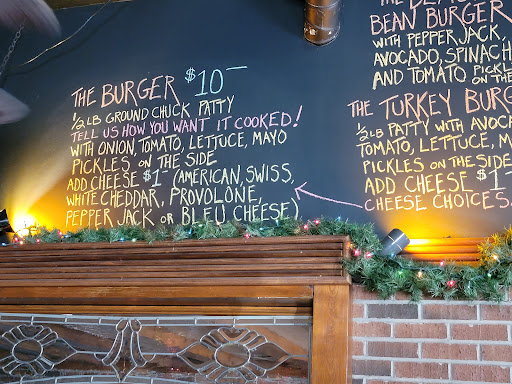 THE BURGER $10—
1/2 LB GROUND CHUCK PATTY
TELL US HOW YOU WANT IT COOKED!
WITH ONION, TOMATO, LETTUCE, MAYO
PICKLES ON THE SIDE
ADD CHEESE $1— (AMERICAN, SWISS,
WHITE CHEDDAR, PROVOLONE,
PEPPER JACK OR BLEU CHEESE)
THE
BEAN BURGER
WITH PEPPER JACK,
AVOCADO, SPINACH
AND TOMATO PICKLES
ON THE
THE TURKEY BURG
1/2 LB PATTY WITH AVOCA
TOMATO, LETTUCE, M
PICKLES ON THE SIDE
ADD CHEESE $1
CHEESE CHOICES